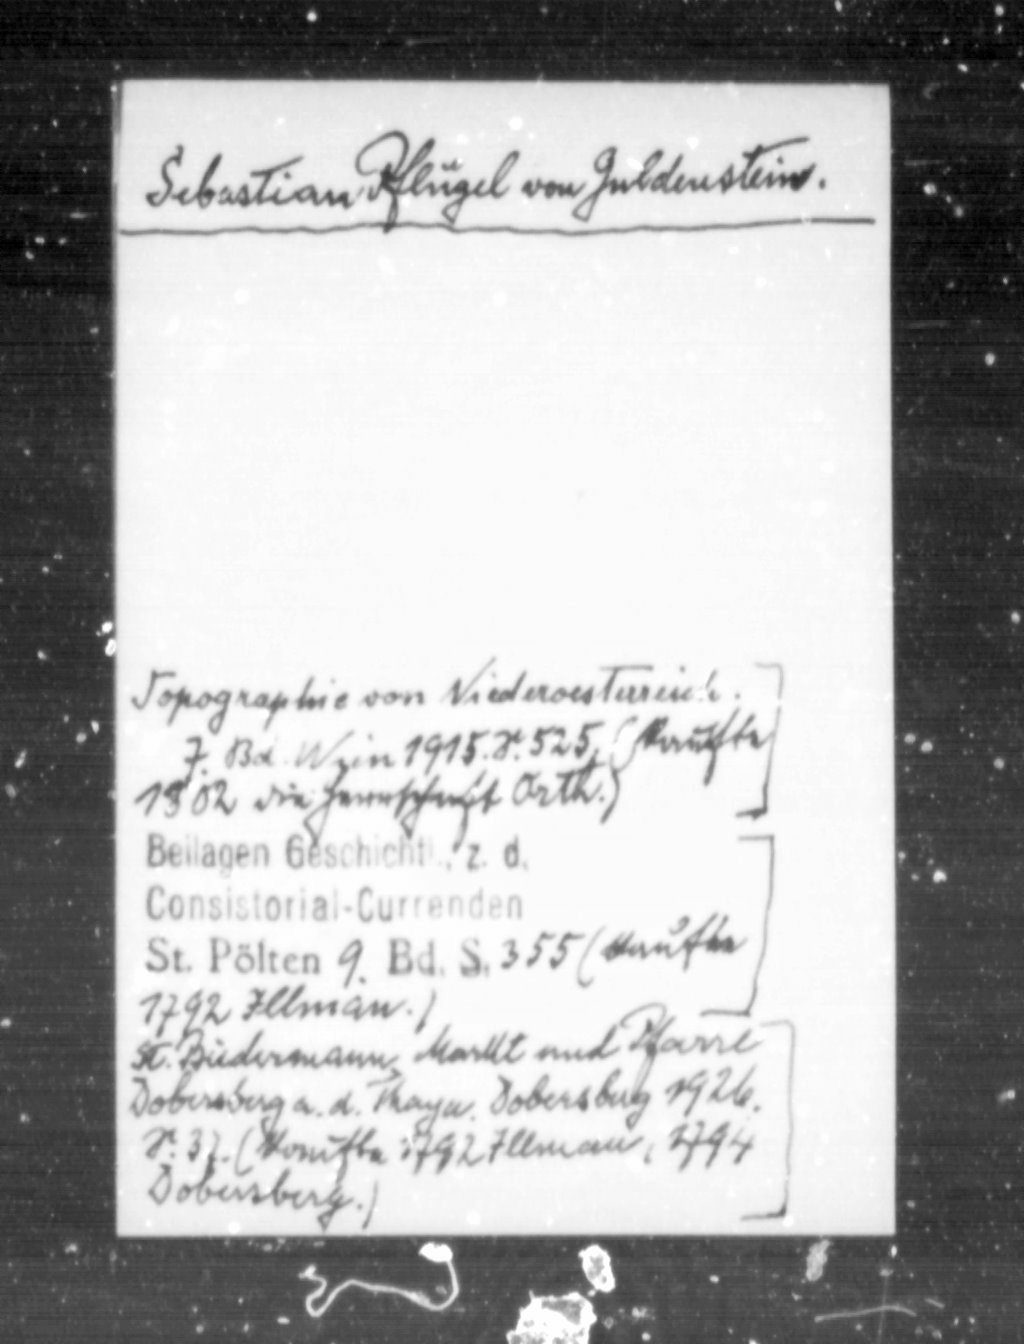 Sebastian Pflügel von Guldenstein.
Topographie von Niederoesterreich.
7. Bd. Wien 1915. S. 525, (Kaufte
1802 die Herrschaft Orth.)
Beilagen Geschichtl., z. d.
Consistorial-Currenden
St. Pölten 9. Bd. S. 355 (Kaufte
1792 Illman.)
St. Biedermann, Markt und Pfarre
Dobersberg a. d. Thaya. Dobersberg 1926.
S. 37. (Kaufte 1792 Illmau, 1794
Dobersberg.)